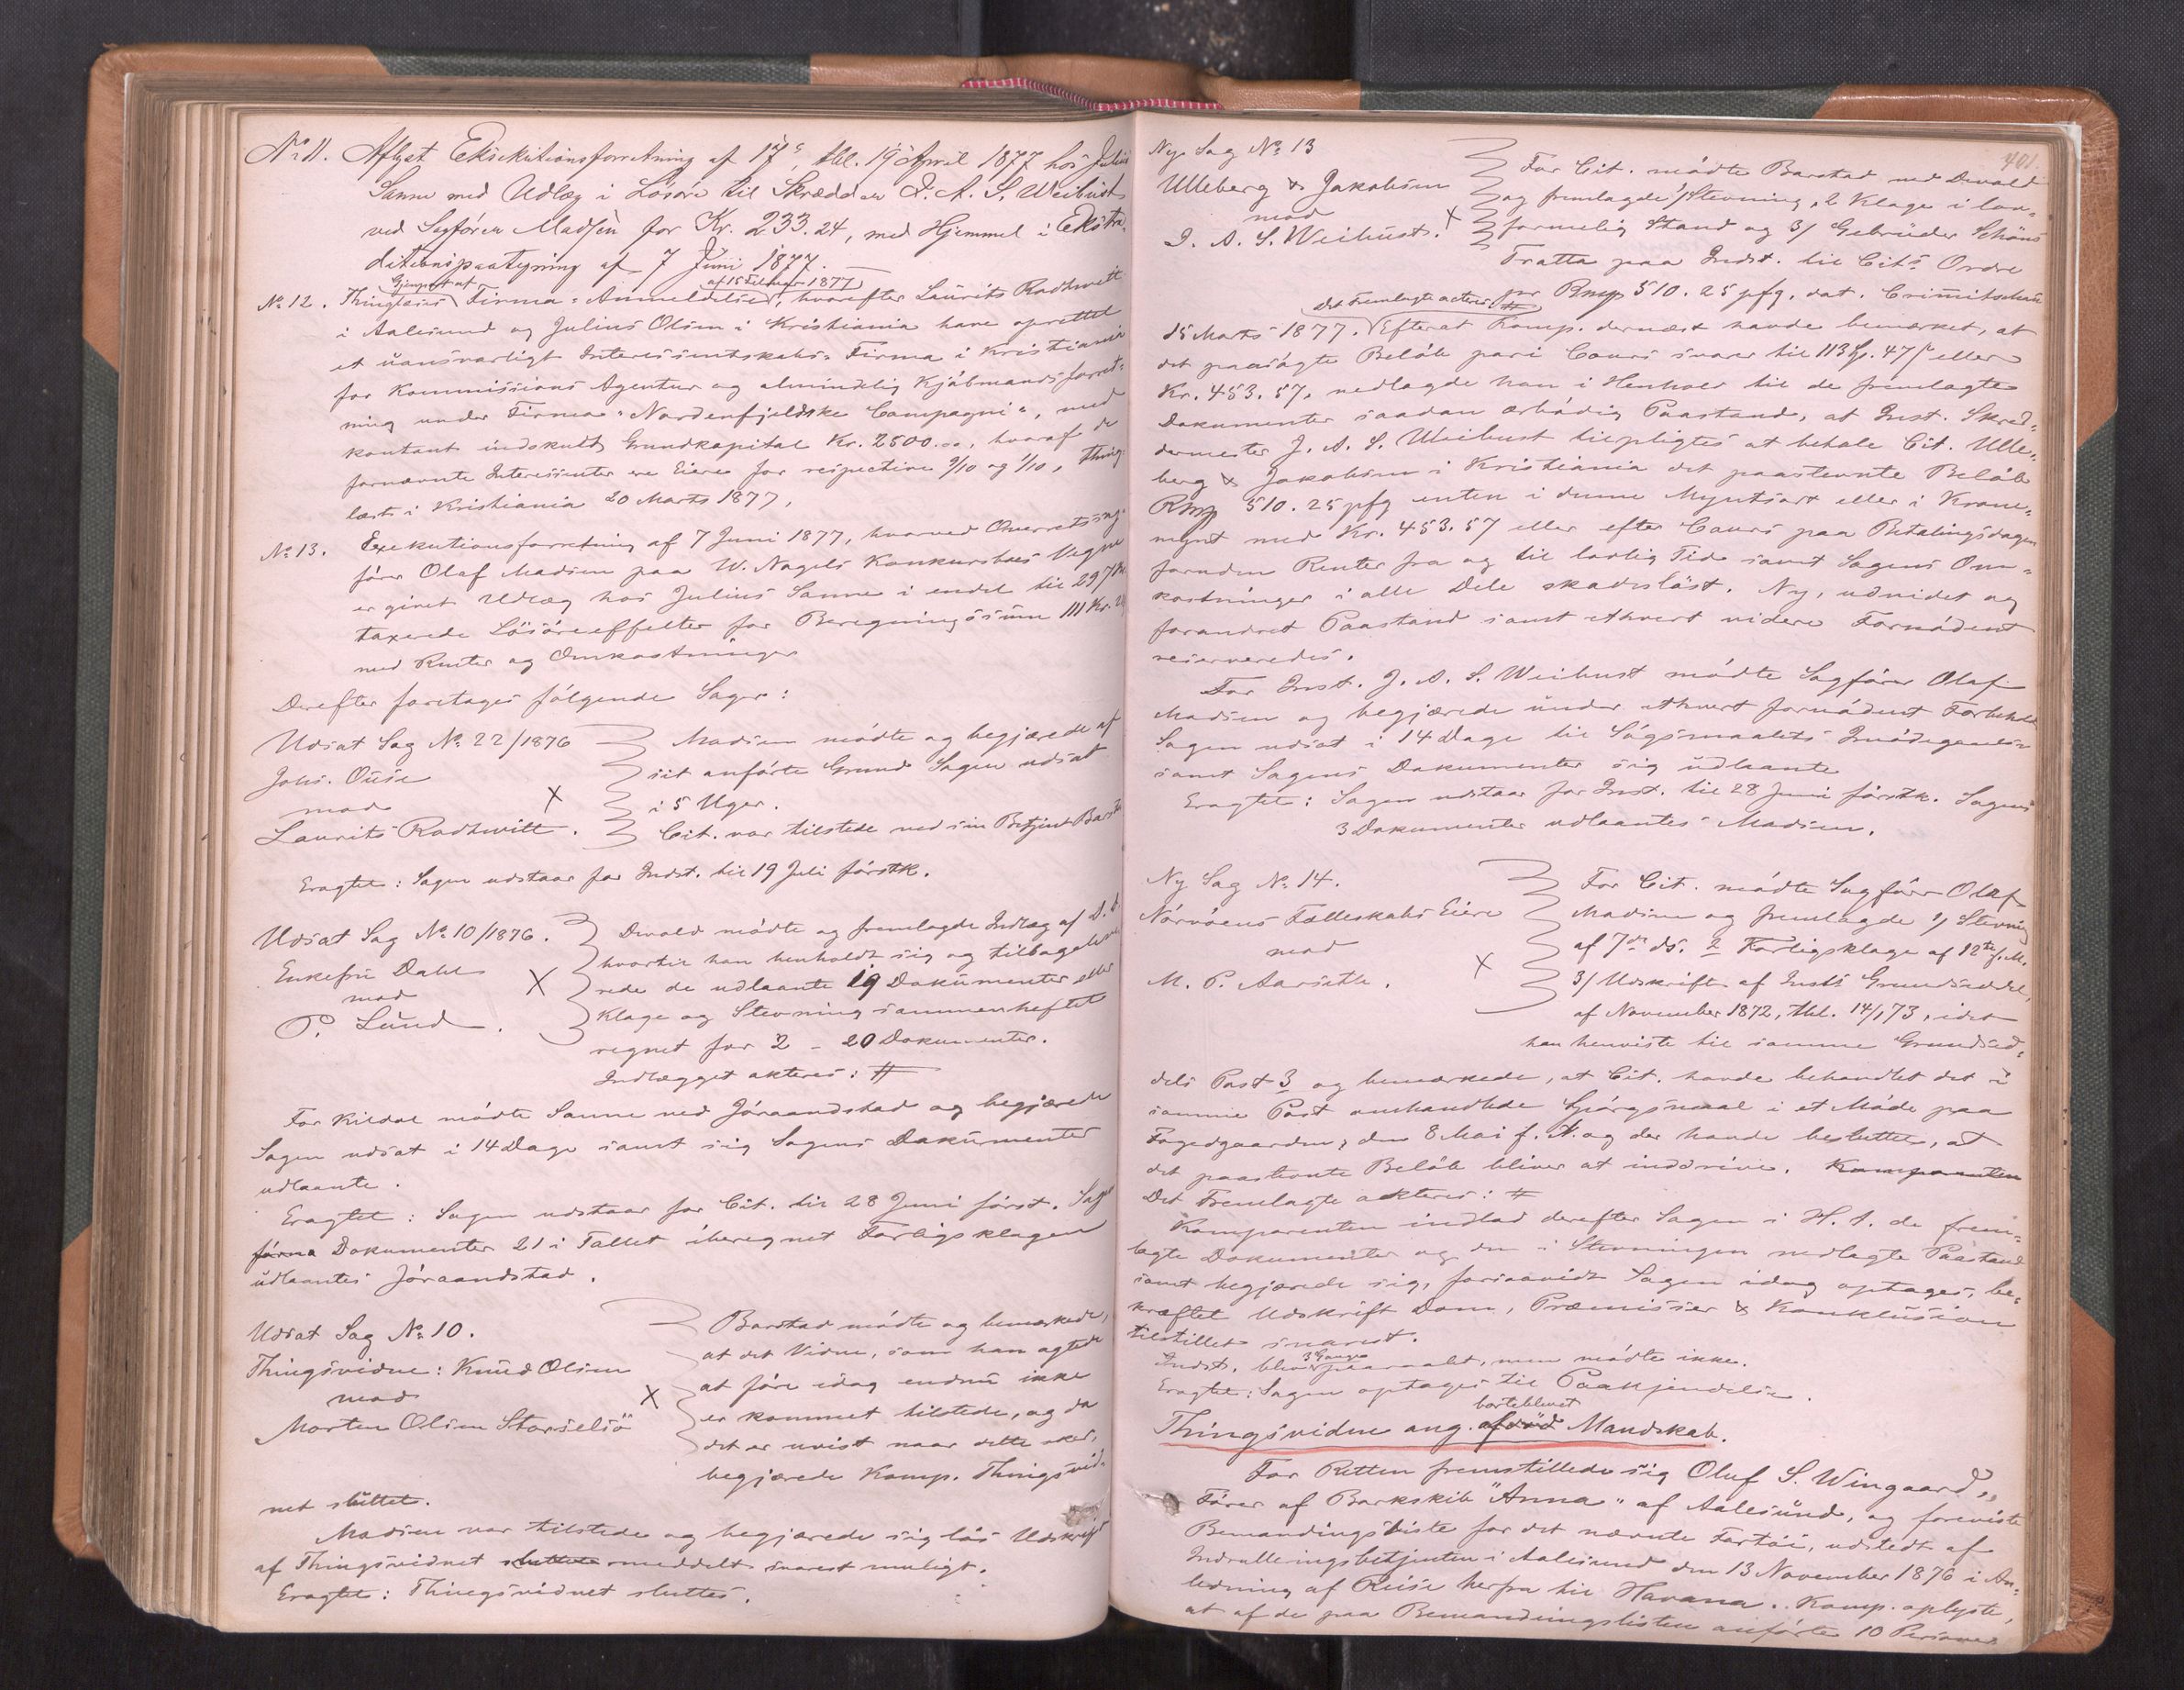 No 11. Aflyst Eksekutionsforretning af 17de, thl. 19 April 1877 hos Julius
Sanne med Udlæg i Lösöre til Skrædder J. A. S. Weibust
ved Sagförer Madsen for Kr. 233.24, med Hjemmel i Ekstra-
ditionspaategning af 7 Juni 1877.
Gjenpart af af 15 Februar 1877
No 12. Thinglæses Firma-Anmeldelse, hvorefter Laurits Rodtwitt
i Aalesund og Julius Olsen i Kristiania have oprettet
et uansvarligt Interessentskabs-Firma i Kristiania
for Kommissions Agentur og almindelig Kjöbmandsforret-
ning under Firma "Nordenfjeldske Compagni", med
kontant indskudt Grundkapital Kr. 2500.00, hvoraf de
fornævnte Interessenter ere Eiere for respective 9/10 og 1/10, thing-
læst i Kristiania 20 Marts 1877.
No 13. Exekutionsforretning af 7 Juni 1877, hvorved Overretssag-
förer Olaf Madsen paa W. Nagels Konkursboes Vegne
er givet Udlæg hos Julius Sanne i endel til 297 Kr.
taxerede Lösöreeffekter for Beregningssum 111 Kr.
med Renter og Omkostninger
Derefter foretages fölgende Sager:
Udsat Sag No 22/1876
Johs. Ouse
mod
Laurits Rodtwitt.
X
Madsen mödte og begjærede af
sit anförte Grund Sagen udsat
i 5 Uger.
Cit. var tilstede ved sin Betjent Barstad
Eragtet: Sagen udstaar for Indst. til 19 Juli förstk.
Udsat Sag No 10/1876.
Enkefru Dahl
mod
P. Lund.
X
Devold mödte og fremlagde Indlæg af D. D.
hvortil han henholdt sig og tilbagele-
rede de udlaante 19 Dokumenter eller
Klage og Stevning sammenheftet
regnet for 2 - 20 Dokumenter.
Indlægget akteres: #
For Kildal mödte Sanne ved Jöraandstad og begjærede
Sagen udsat i 14 Dage samt sig Sagens Dokumenter
udlaante.
Eragtet: Sagen udstaar for Cit. til 28 Juni först. Sagens
Dokumenter 21 i Tallet iberegnet Forligsklagen
udlaantes Jöraandstad.
Udsat Sag No 10.
Thingsvidne: Knud Olsen
mod
Morten Olsen Storseljö
X
Barstad mödte og bemærkede,
at det Vidne, som han agtede
at före idag endnu ikke
er kommet tilstede, og da
det er uvist naar dette sker,
begjærede Komp. Thingsvid-
net sluttet.
Madsen var tilstede og begjærede sig lös Udskrift
af Thingsvidnet sluttet meddelt snarest muligt.
Eragtet: Thingsvidnet sluttes.
401.
Ny Sag No 13
Ulleberg & Jakobsen
mod
J. A. S. Weibust.
X
For Cit. mödte Barstad ved Devold
og fremlagde 1/ Stevning, 2 Klage i lov-
formelig Stand og 3/ Gebrüder Schöns
Tratta paa Indst. til Cits Ordre
pr Rmp 510.25 pfg. dat. Crimitschau
det Fremlagte acteres #
15 Marts 1877. Efterat Komp. dernæst havde bemærket, at
det paasögte Belöb pari Cours svarer til 113 Sp. 47 s eller
Kr. 453.57, nedlagde han i Henhold til de fremlagte
Dokumenter saadan ærbödig Paastand, at Inst. Skræd-
dermester J. A. S. Weibust tilpligtes at betale Cit. Ulle-
berg & Jakobsen i Kristiania det paastevnte Belöb
Rmp 510.25 pfg enten i denne Myntsort eller i Krone-
mynt med Kr. 453.57 eller efter Cours paa Betalingsdagen
foruden Renter fra og til lovlig Tid samt Sagens Om-
kostninger i alle Dele skadeslöst. Ny, udvidet og
forandret Paastand samt ethvert videre Fornödent
reserveredes.
For Inst. J. A. S. Weibust mödte Sagförer Olaf
Madsen og begjærede under ethvert fornödent Forbehold
Sagen udsat i 14 Dage til Sögsmaalets Imödegaaelse
samt Sagens Dokumenter sig udlaante
Eragtet: Sagen udstaar for Inst. til 28 Juni förstk. Sagens
3 Dokumenter udlaantes Madsen.
Ny Sag No 14.
Nörvöens Fælleskabs Eiere
mod
M. P. Aarseth.
X
For Cit. mödte Sagförer Olaf
Madsen og fremlagde 1/ Stevning
af 7de ds. 2 Forligsklage af 12te f. M.
3/ Udskrift af Insts Grundseddel,
af November 1872, thl. 14/1 73, idet
han henviste til samme Grundsed-
dels Post 3 og bemærkede, at Cit. havde behandlet det i
samme Post omhandlede Spörgsmaal i et Möde paa
Fogedgaarden, den 8 Mai f. A. og der havde besluttet, at
det paastevnte Belöb bliver at inddrive. Komparenten
Det Fremlagte akteres: #
Komparenten indlod derefter Sagen i H. t. de frem-
lagte Dokumenter og den i Stevningen nedlagte Paastand
samt begjærede sig, forsaavidt Sagen idag optages, be-
kræftet Udskrift Dom, Præmisser & Konklusion
tilstillet snarest.
3 Gange
Indst. blev paaraabt, men mödte ikke.
Eragtet: Sagen optages til Paakjendelse.
bortblevet
Thingsvidne ang. afdöd Mandskab.
For Retten fremstillede sig Oluf S. Wingaard,
Förer af Barkskib "Anna" af Aalesund, og foreviste
Bemandingsliste for det nævnte Fartöi, udstedt af
Indrulleringsbetjenten i Aalesund den 13 November 1876 i An-
ledning af Reise herfra til Havana. Komp. oplyste,
at af de paa Bemandingslisten anförte 10 Personer